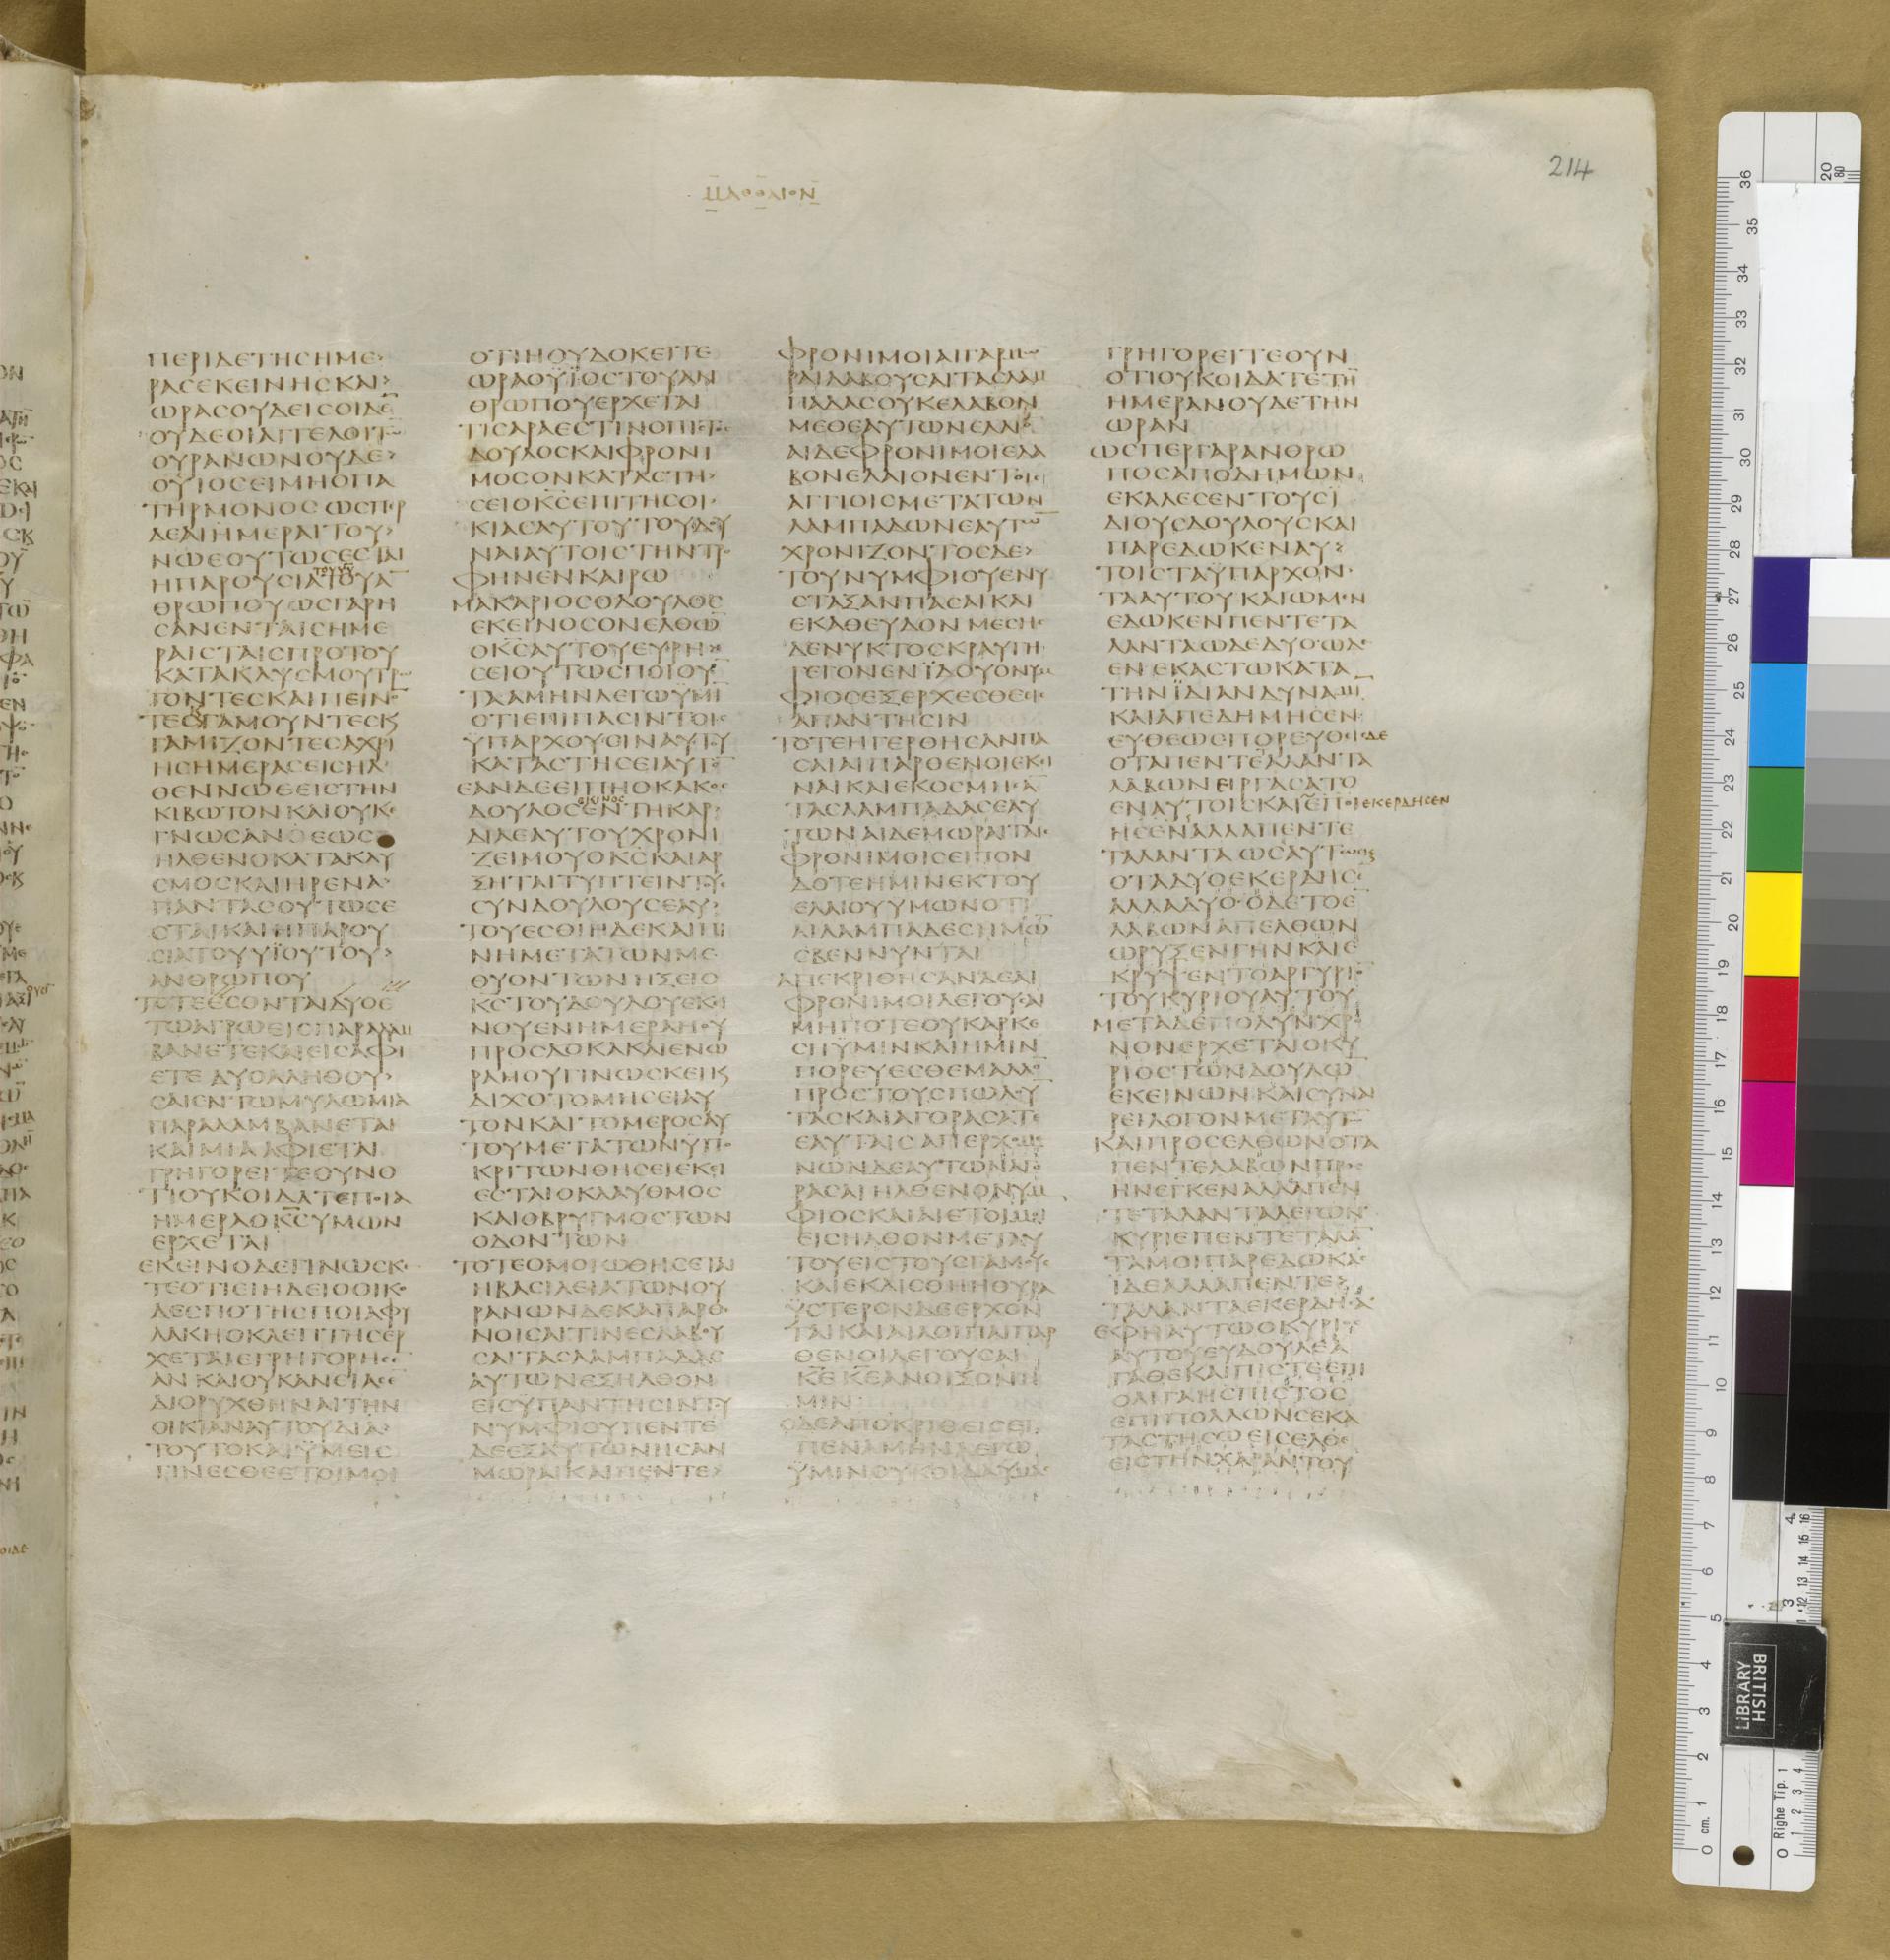 214
ΜΑΘΘΑΙΟΝ
ΠΕΡΙΔΕΤΗϹΗΜΕ
ΡΑϹΕΚΕΙΝΗϹΚΑΙ
ΩΡΑϹΟΥΔΕΙϹΟΙΔΕ̅
ΟΥΔΕΟΙΑΓΓΕΛΟΙΤΩ̅
ΟΥΡΑΝΩΝΟΥΔΕ
ΟΥΙΟϹΕΙΜΗΟΠΑ
ΤΗΡΜΟΝΟϹΩϹΠΕΡ
ΔΕΑΙΗΜΕΡΑΙΤΟΥ
ΝΩΕΟΥΤΩϹΕϹΤΑΙ
ΗΠΑΡΟΥϹΙΑΤΟΥΥΥΤΟΥΑ̅
ΘΡΩΠΟΥΩϹΓΑΡΗ
ϹΑΝΕΝΤΑΙϹΗΜΕ
ΡΑΙϹΤΑΙϹΠΡΟΤΟΥ
ΚΑΤΑΚΛΥϹΜΟΥΤΡΩ
ΓΟΝΤΕϹΚΑΙΠΕΙΝΟ̅
ΤΕϹΓΑΜΟΥΝΤΕϹΚ
ΓΑΜΙΖΟΝΤΕϹΑΧΡΙ
ΗϹΗΜΕΡΑϹΕΙϹΗΛ
ΘΕΝΝΩΕΕΙϹΤΗΝ
ΚΙΒΩΤΟΝΚΑΙΟΥΚ
ΓΝΩϹΑΝΕΩϹ
ΗΛΘΕΝΟΚΑΤΑΚΛΥ
ϹΜΟϹΚΑΙΗΡΕΝΑ
ΠΑΝΤΑϹΟΥΤΩϹΕ
ϹΤΑΙΚΑΙΗΠΑΡΟΥ
ϹΙΑΤΟΥΥΪΟΥΤΟΥ
ΑΝΘΡΩΠΟΥ
ΤΟΤΕΕϹΟΝΤΑΙΔΥΟΕ̅
ΤΩΑΓΡΩΕΙϹΠΑΡΑΛΑΜ
ΒΑΝΕΤΕΚΑΙΕΙϹΑΦΙ
ΕΤΕΔΥΟΑΛΗΘΟΥ
ϹΑΙΕΝΤΩΜΥΛΩΜΙΑ
ΠΑΡΑΛΑΜΒΑΝΕΤΑΙ
ΚΑΙΜΙΑΑΦΙΕΤΑΙ
ΓΡΗΓΟΡΕΙΤΕΟΥΝΟ
ΤΙΟΥΚΟΙΔΑΤΕΠΟΙΑ
ΗΜΕΡΑΟΚ̅ϹΥΜΩΝ
ΕΡΧΕΤΑΙ
ΕΚΕΙΝΟΔΕΓΙΝΩϹΚΕ
ΤΕΟΤΙΕΙΗΔΕΙΟΟΙΚΟ
ΔΕϹΠΟΤΗϹΠΟΙΑΦΥ
ΛΑΚΗΟΚΛΕΠΤΗϹΕΡ
ΧΕΤΑΙΕΓΡΗΓΟΡΗϹΕ̅
ΑΝΚΑΙΟΥΚΑΝΕΙΑϹΕ̅
ΔΙΟΡΥΧΘΗΝΑΙΤΗΝ
ΟΙΚΙΑΝΑΥΤΟΥΔΙΑ
ΤΟΥΤΟΚΑΙΫΜΕΙϹ
ΓΙΝΕϹΘΕΕΤΟΙΜΟΙ
ΟΤΙΗΟΥΔΟΚΕΙΤΕ
ΩΡΑΟΫΪΟϹΤΟΥΑΝ
ΘΡΩΠΟΥΕΡΧΕΤΑΙ
ΤΙϹΑΡΑΕϹΤΙΝΟΠΙϹΤΟϹ
ΔΟΥΛΟϹΚΑΙΦΡΟΝΙ
ΜΟϹΟΝΚΑΤΑϹΤΗ
ϹΕΙΟΚ̅ϹΕΠΙΤΗϹΟΙ
ΚΙΑϹΑΥΤΟΥΤΟΥΔΟΥ
ΝΑΙΑΥΤΟΙϹΤΗΝΤΡΟ
ΦΗΝΕΝΚΑΙΡΩ
ΜΑΚΑΡΙΟϹΟΔΟΥΛΟϹ
ΕΚΕΙΝΟϹΟΝΕΛΘΩ̅
ΟΚ̅ϹΑΥΤΟΥΕΥΡΗ
ϹΕΙΟΥΤΩϹΠΟΙΟΥ̅
ΤΑΑΜΗΝΛΕΓΩΫΜΙ
ΟΤΙΕΠΙΠΑϹΙΝΤΟΙϹ
ΫΠΑΡΧΟΥϹΙΝΑΥΤΟΥ
ΚΑΤΑϹΤΗϹΕΙΑΥΤΟ̅
ΕΑΝΔΕΕΙΠΗΟΚΑΚΟϹ
ΔΟΥΛΟϹΕΚΙΝΟϹΕΝΤΗΚΑΡ
ΔΙΑΕΑΥΤΟΥΧΡΟΝΙ
ΖΕΙΜΟΥΟΚ̅ϹΚΑΙΑΡ
ΞΗΤΑΙΤΥΠΤΕΙΝΤΟΥϹ
ϹΥΝΔΟΥΛΟΥϹΕΑΥ
ΤΟΥΕϹΘΙΗΔΕΚΑΙΠΙ
ΝΗΜΕΤΑΤΩΝΜΕ
ΘΥΟΝΤΩΝΗΞΕΙΟ
ΚϹΤΟΥΔΟΥΛΟΥΕΚΕΙ
ΝΟΥΕΝΗΜΕΡΑΗΟΥ
ΠΡΟϹΔΟΚΑΚΑΙΕΝΩ
ΡΑΗΟΥΓΙΝΩϹΚΕΙΚ
ΔΙΧΟΤΟΜΗϹΕΙΑΥ
ΤΟΝΚΑΙΤΟΜΕΡΟϹΑΥ
ΤΟΥΜΕΤΑΤΩΝΥΠΟ
ΚΡΙΤΩΝΘΗϹΕΙΕΚΕΙ
ΕϹΤΑΙΟΚΛΑΥΘΜΟϹ
ΚΑΙΟΒΡΥΓΜΟϹΤΩΝ
ΟΔΟΝΤΩΝ
ΤΟΤΕΟΜΟΙΩΘΗϹΕΤΑΙ
ΗΒΑϹΙΛΕΙΑΤΩΝΟΥ
ΡΑΝΩΝΔΕΚΑΠΑΡΘΕ
ΝΟΙϹΑΙΤΙΝΕϹΛΑΒΟΥ
ϹΑΙΤΑϹΛΑΜΠΑΔΑϹ
ΑΥΤΩΝΕΞΗΛΘΟΝ
ΕΙϹΥΠΑΝΤΗϹΙΝΤΟΥ
ΝΥΜΦΙΟΥΠΕΝΤΕ
ΔΕΕΞΑΥΤΩΝΗϹΑΝ
ΜΩΡΑΙΚΑΙΠΕΝΤΕ
ΦΡΟΝΙΜΟΙΑΙΓΑΡΜΩ
ΡΑΙΛΑΒΟΥϹΑΙΤΑϹΛΑΜ
ΠΑΔΑϹΟΥΚΕΛΑΒΟΝ
ΜΕΘΕΑΥΤΩΝΕΛΑΙΟ̅
ΑΙΔΕΦΡΟΝΙΜΟΙΕΛΑ
ΒΟΝΕΛΑΙΟΝΕΝΤΟΙϹ
ΑΓΓΙΟΙϹΜΕΤΑΤΩΝ
ΛΑΜΠΑΔΩΝΕΑΥΤΩ̅
ΧΡΟΝΙΖΟΝΤΟϹΔΕ
ΤΟΥΝΥΜΦΙΟΥΕΝΥ
ϹΤΑΞΑΝΠΑϹΑΙΚΑΙ
ΕΚΑΘΕΥΔΟΝΜΕϹΗϹ
ΔΕΝΥΚΤΟϹΚΡΑΥΓΗ
ΓΕΓΟΝΕΝΪΔΟΥΟΝΥΜ
ΦΙΟϹΕΞΕΡΧΕϹΘΕΕΙϹ
ΑΠΑΝΤΗϹΙΝ
ΤΟΤΕΗΓΕΡΘΗϹΑΝΠΑ
ϹΑΙΑΙΠΑΡΘΕΝΟΙΕΚΕΙ
ΝΑΙΚΑΙΕΚΟϹΜΗϹΑ̅
ΤΑϹΛΑΜΠΑΔΑϹΕΑΥ
ΤΩΝΑΙΔΕΜΩΡΑΙΤΑΙϹ
ΦΡΟΝΙΜΟΙϹΕΙΠΟΝ
ΔΟΤΕΗΜΙΝΕΚΤΟΥ
ΕΛΑΙΟΥΥΜΩΝΟΤΙ
ΑΙΛΑΜΠΑΔΕϹΗΜΩ̅
ϹΒΕΝΝΥΝΤΑΙ
ΑΠΕΚΡΙΘΗϹΑΝΔΕΑΙ
ΦΡΟΝΙΜΟΙΛΕΓΟΥϹΑΙ
ΜΗΠΟΤΕΟΥΚΑΡΚΕ
ϹΗΫΜΙΝΚΑΙΗΜΙΝ
ΠΟΡΕΥΕϹΘΕΜΑΛΛΟ̅
ΠΡΟϹΤΟΥϹΠΩΛΟΥ
ΤΑϹΚΑΙΑΓΟΡΑϹΑΤΕ
ΕΑΥΤΑΙϹΑΠΕΡΧΟΜΕ
ΝΩΝΔΕΑΥΤΩΝΑΓΟ
ΡΑϹΑΙΗΛΘΕΝΟΝΥΜ
ΦΙΟϹΚΑΙΑΙΕΤΟΙΜΟΙ
ΕΙϹΗΛΘΟΝΜΕΤΑΥ
ΤΟΥΕΙϹΤΟΥϹΓΑΜΟΥϹ
ΚΑΙΕΚΛΙϹΘΗΗΘΥΡΑ
ΫϹΤΕΡΟΝΔΕΕΡΧΟΝ
ΤΑΙΚΑΙΑΙΛΟΙΠΑΙΠΑΡ
ΘΕΝΟΙΛΕΓΟΥϹΑΙ
Κ̅ΕΚ̅ΕΑΝΟΙΞΟΝΗ
ΜΙΝ
ΟΔΕΑΠΟΚΡΙΘΕΙϹΕΙ
ΠΕΝΑΜΗΝΛΕΓΩ
ΫΜΙΝΟΥΚΟΙΔΑΥΜΑϹ
ΓΡΗΓΟΡΕΙΤΕΟΥΝ
ΟΤΙΟΥΚΟΙΔΑΤΕΤΗ̅
ΗΜΕΡΑΝΟΥΔΕΤΗΝ
ΩΡΑΝ
ΩϹΠΕΡΓΑΡΑΝΘΡΩ
ΠΟϹΑΠΟΔΗΜΩΝ
ΕΚΑΛΕϹΕΝΤΟΥϹΪ
ΔΙΟΥϹΔΟΥΛΟΥϹΚΑΙ
ΠΑΡΕΔΩΚΕΝΑΥ
ΤΟΙϹΤΑΫΠΑΡΧΟΝ
ΤΑΑΥΤΟΥΚΑΙΩΜΕΝ
ΕΔΩΚΕΝΠΕΝΤΕΤΑ
ΛΑΝΤΑΩΔΕΔΥΟΩΔΕ
ΕΝΕΚΑϹΤΩΚΑΤΑ
ΤΗΝΪΔΙΑΝΔΥΝΑΜΙ̅
ΚΑΙΑΠΕΔΗΜΗϹΕΝ
ΕΥΘΕΩϹΠΟΡΕΥΘΕΙϹΔΕ
ΟΤΑΠΕΝΤΕΤΑΛΑΝΤΑ
ΛΑΒΩΝΕΙΡΓΑϹΑΤΟ
ΕΝΑΥΤΟΙϹΚΑΙΕΠΟΙΕΚΕΡΔΗϹΕΝ
ΗϹΕΝΑΛΛΑΠΕΝΤΕ
ΤΑΛΑΝΤΑΩϹΑΥΤΩϹ
ΟΤΑΔΥΟΕΚΕΡΔΗϹΕ̅
ΑΛΛΑΔΥΟΟΔΕΤΟΕ̅
ΛΑΒΩΝΑΠΕΛΘΩΝ
ΩΡΥΞΕΝΓΗΝΚΑΙΕ
ΚΡΥΨΕΝΤΟΑΡΓΥΡΙΟ̅
ΤΟΥΚΥΡΙΟΥΑΥΤΟΥ
ΜΕΤΑΔΕΠΟΛΥΝΧΡΟ
ΝΟΝΕΡΧΕΤΑΙΟΚΥ
ΡΙΟϹΤΩΝΔΟΥΛΩ̅
ΕΚΕΙΝΩΝΚΑΙϹΥΝΑΙ
ΡΕΙΛΟΓΟΝΜΕΤΑΥΤΩ̅
ΚΑΙΠΡΟϹΕΛΘΩΝΟΤΑ
ΠΕΝΤΕΛΑΒΩΝΠΡΟϹ
ΗΝΕΓΚΕΝΑΛΛΑΠΕΝ
ΤΕΤΑΛΑΝΤΑΛΕΓΩΝ
ΚΥΡΙΕΠΕΝΤΕΤΑΛΑ̅
ΤΑΜΟΙΠΑΡΕΔΩΚΑϹ
ΪΔΕΑΛΛΑΠΕΝΤΕ
ΤΑΛΑΝΤΑΕΚΕΡΔΗϹΑ
ΕΦΗΑΥΤΩΟΚΥΡΙΟϹ
ΑΥΤΟΥΕΥΔΟΥΛΕΑ
ΓΑΘΕΚΑΙΠΙϹΤΕΕΠΙ
ΟΛΙΓΑΗϹΠΙϹΤΟϹ
ΕΠΙΠΟΛΛΩΝϹΕΚΑ
ΤΑϹΤΗϹΩΕΙϹΕΛΘΕ
ΕΙϹΤΗΝΧΑΡΑΝΤΟΥ